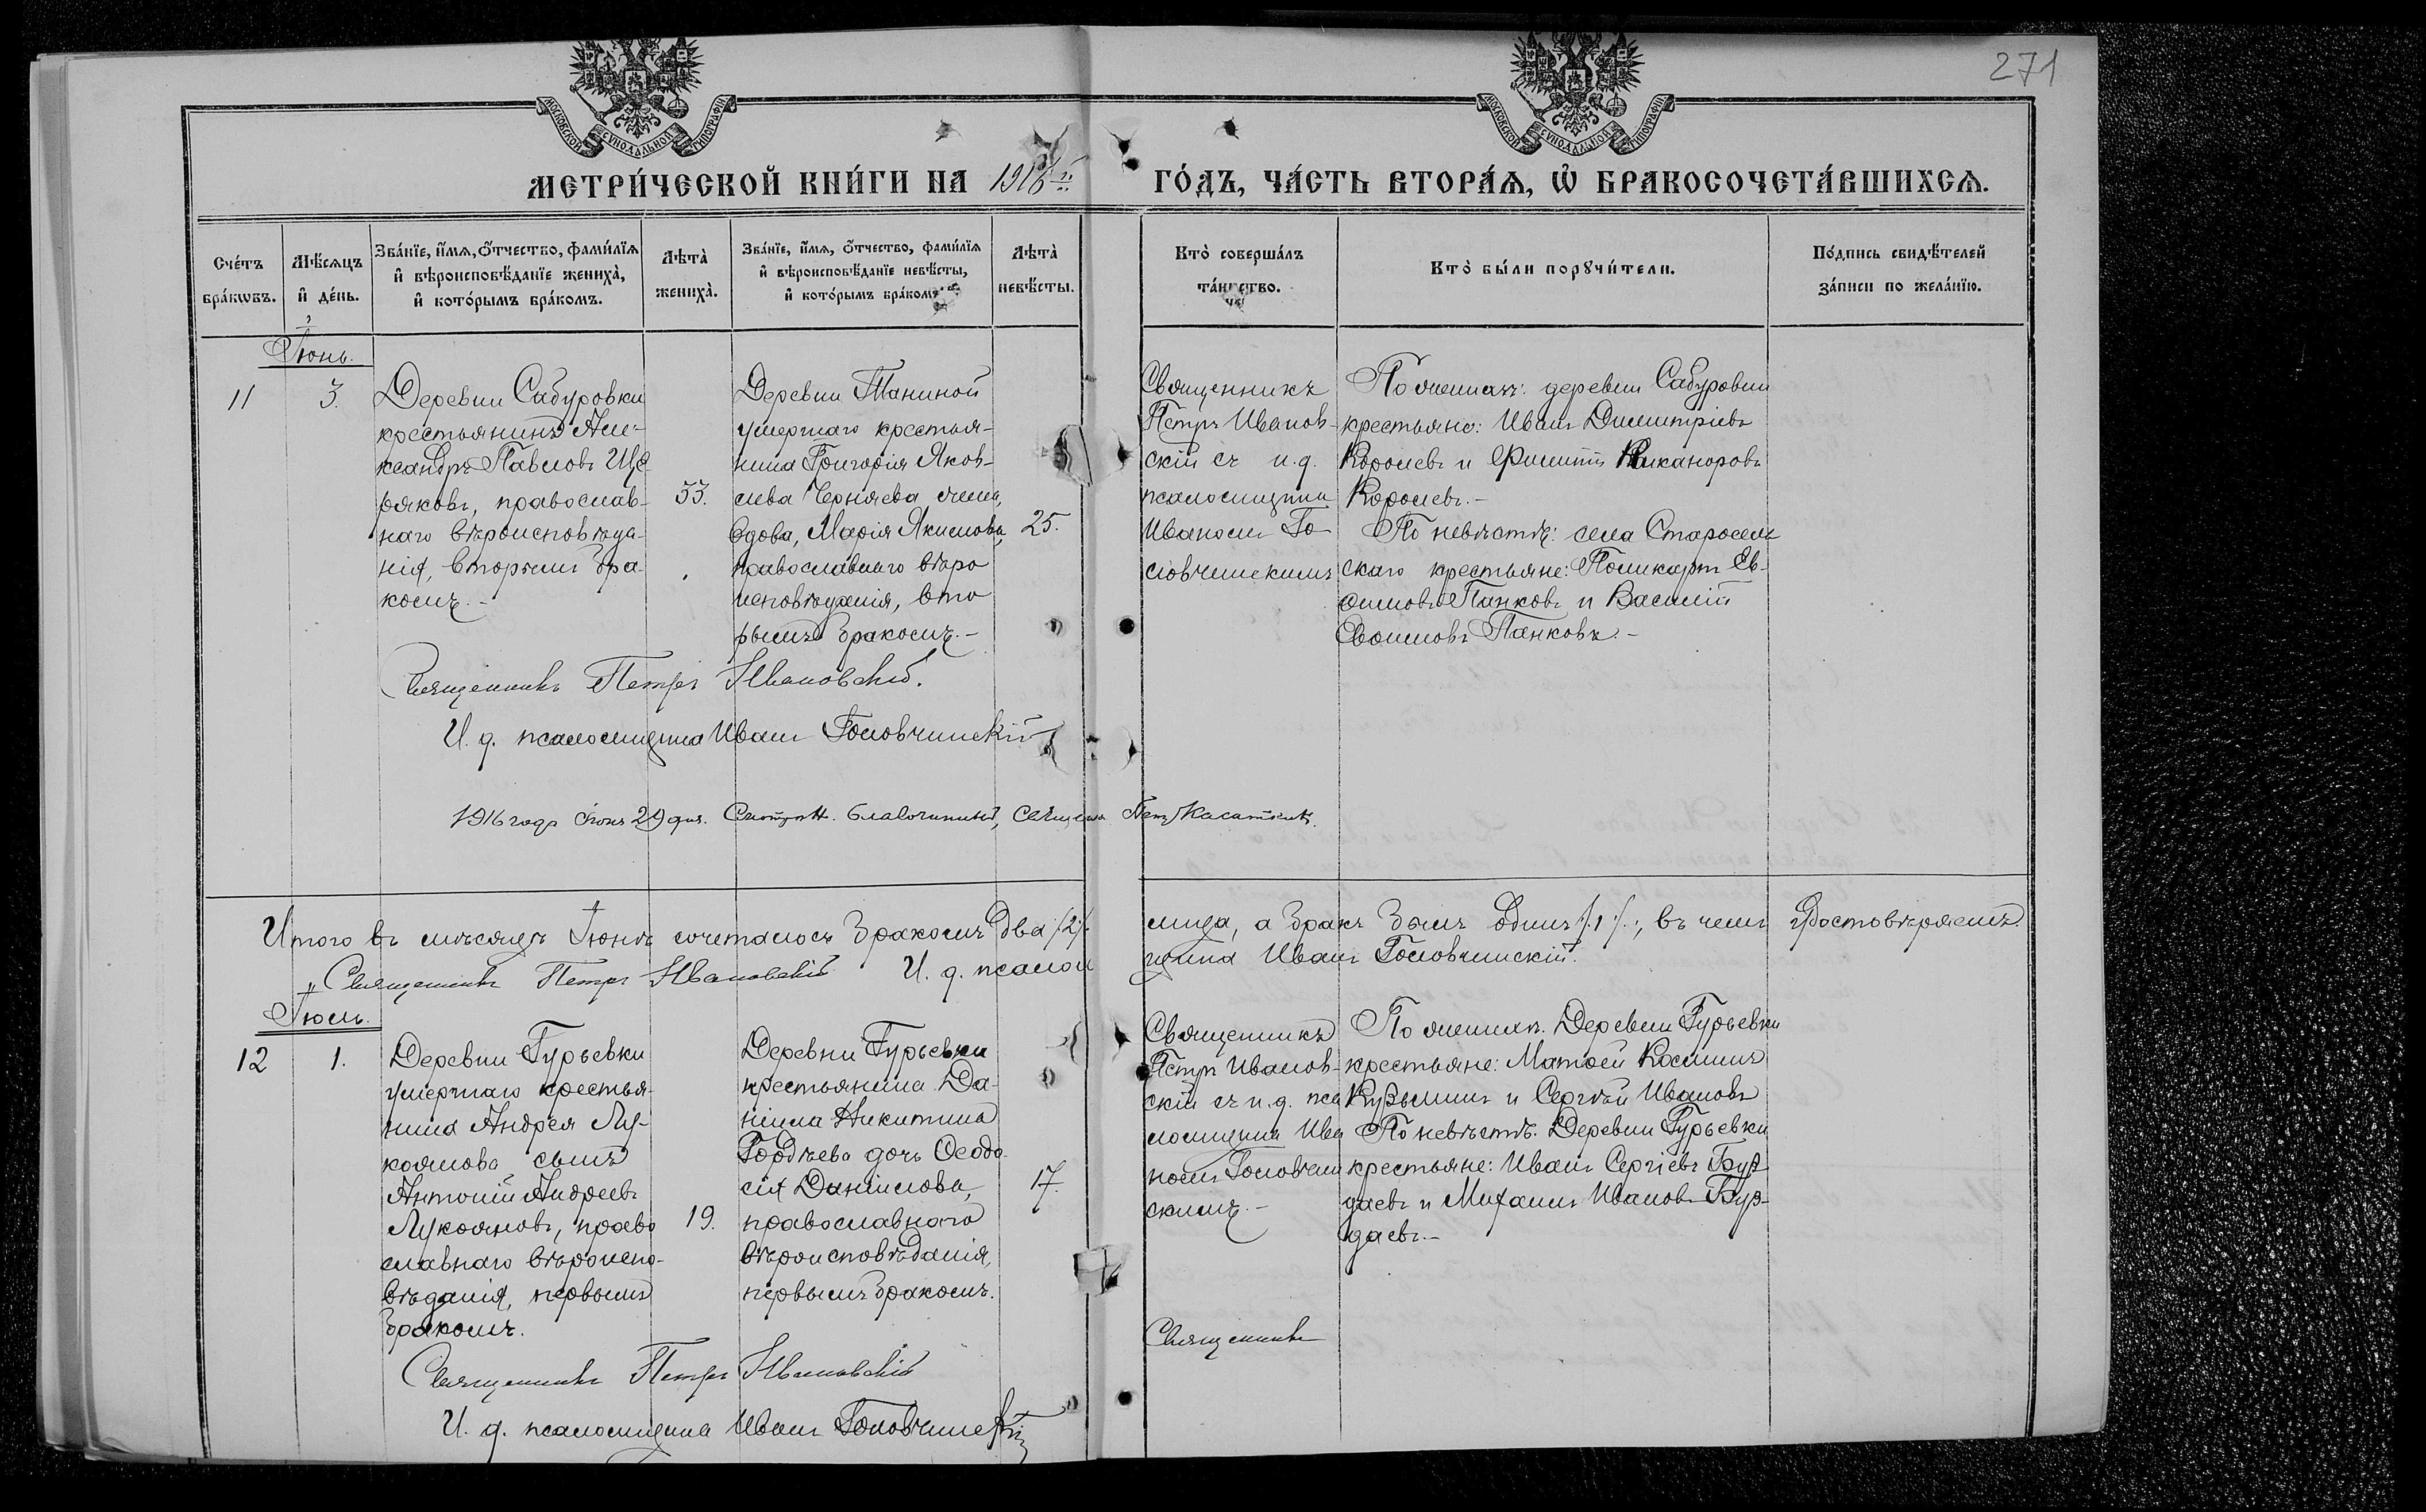 271
МОСКОВСКОЙ СУНОДАЛЬНОЙ ТИПОГРАФІИ
МОСКОВСКОЙ СУНОДАЛЬНОЙ ТИПОГРАФІИ
МЕТРИ́ЧЕСКОЙ КНИ́ГИ НА 1916 й ГО́ДЪ, ЧА́СТЬ ВТОРА́Я, Ѡ҆ БРАКОСОЧЕТА́ВШИХСЯ.
Сче́тъ бра́кѡвъ.
Мѣ́сяцъ и҆ де́нь.
Зва́нїе, и҆́мя, о҆́тчество, фами́лїя
и҆ вѣроисповѣ́данїе жениха̀,
и҆ кото́рымъ бра́комъ.
Лѣта̀
жениха̀.
Зва́нїе, и҆́мя, о҆́тчество, фами́лїя
и҆ вѣроисповѣ́данїе невѣ́сты,
и҆ кото́рымъ бра́комъ
Лѣта̀
невѣ́сты.
Кто̀ соверша́лъ
та́инство.
Кто̀ бы́ли порꙋчи́тели.
По́дпись свидѣ́телей
за́писи по жела́нїю.
Іюнь.
11
3.
Деревни Сабуровки
крестьянинъ Але-
ксандръ Павловъ Ще
ряковъ, православ-
наго вѣроисповѣда-
нія, вторымъ бра-
комъ.-
53.
Деревни Таниной
умершаго крестья-
нина Григорія Яков-
лева Черняева жена,
вдова, Марія Якимова,
православнаго вѣро
исповѣданія, вто
рымъ бракомъ.-
25.
Священникъ
Петръ Иванов-
скій съ и.д.
псаломщика
Иваномъ Го-
ловчинскимъ
По женихѣ: деревни Сабуровки
крестьяне: Иванъ Димитріевъ
Королевъ и Филиппъ Никаноровъ
Королевъ.-
По невѣстѣ: села Старосель
скаго крестьяне: Поликарпъ Ев-
Панковъ и Василій
Панковъ.-
Священникъ Петръ Ивановскій.
И. д. псаломщика Иванъ Головчинскій
1916 года Іюня 29 дня. Смотрѣлъ. Благочинный, Священ. Петр Касаткин.
Итого въ мѣсяцѣ Іюнѣ сочеталось бракомъ два /2/. лица, а бракъ былъ одинъ /.1/., въ чемъ удостовѣряемъ.
Священникъ Петръ Ивановскій И. д. псалом щика Иванъ Головчинскій.
Іюль.
12
1.
Деревни Гурьевки
умершаго крестья-
нина Андрея Лу-
коянова сынъ
Антоній Андреевъ
Лукояновъ, право
славнаго вѣроиспо-
вѣданія, первымъ
бракомъ.
19.
Деревни Гурьевки
крестьянина Да-
ніила Никитина
Гордѣева дочь Ѳеодо
сія Даніилова,
православнаго
вѣроисповѣданія,
первымъ бракомъ.
17.
Священникъ
Петръ Иванов-
скій съ и.д. пса
ломщика Ива
номъ Головчин
скимъ.-
По женихѣ. Деревни Гурьевки
крестьяне: Матѳей Косминъ
Кузьминъ и Сергѣй Ивановъ
По невѣстѣ. Деревни Гурьевки
крестьяне: Иванъ Сергіевъ Бур
даевъ и Михаилъ Ивановъ Бур-
даевъ.-
Священникъ
Священникъ Петръ Ивановскій
И. д. псаломщика Иванъ Головчинскій